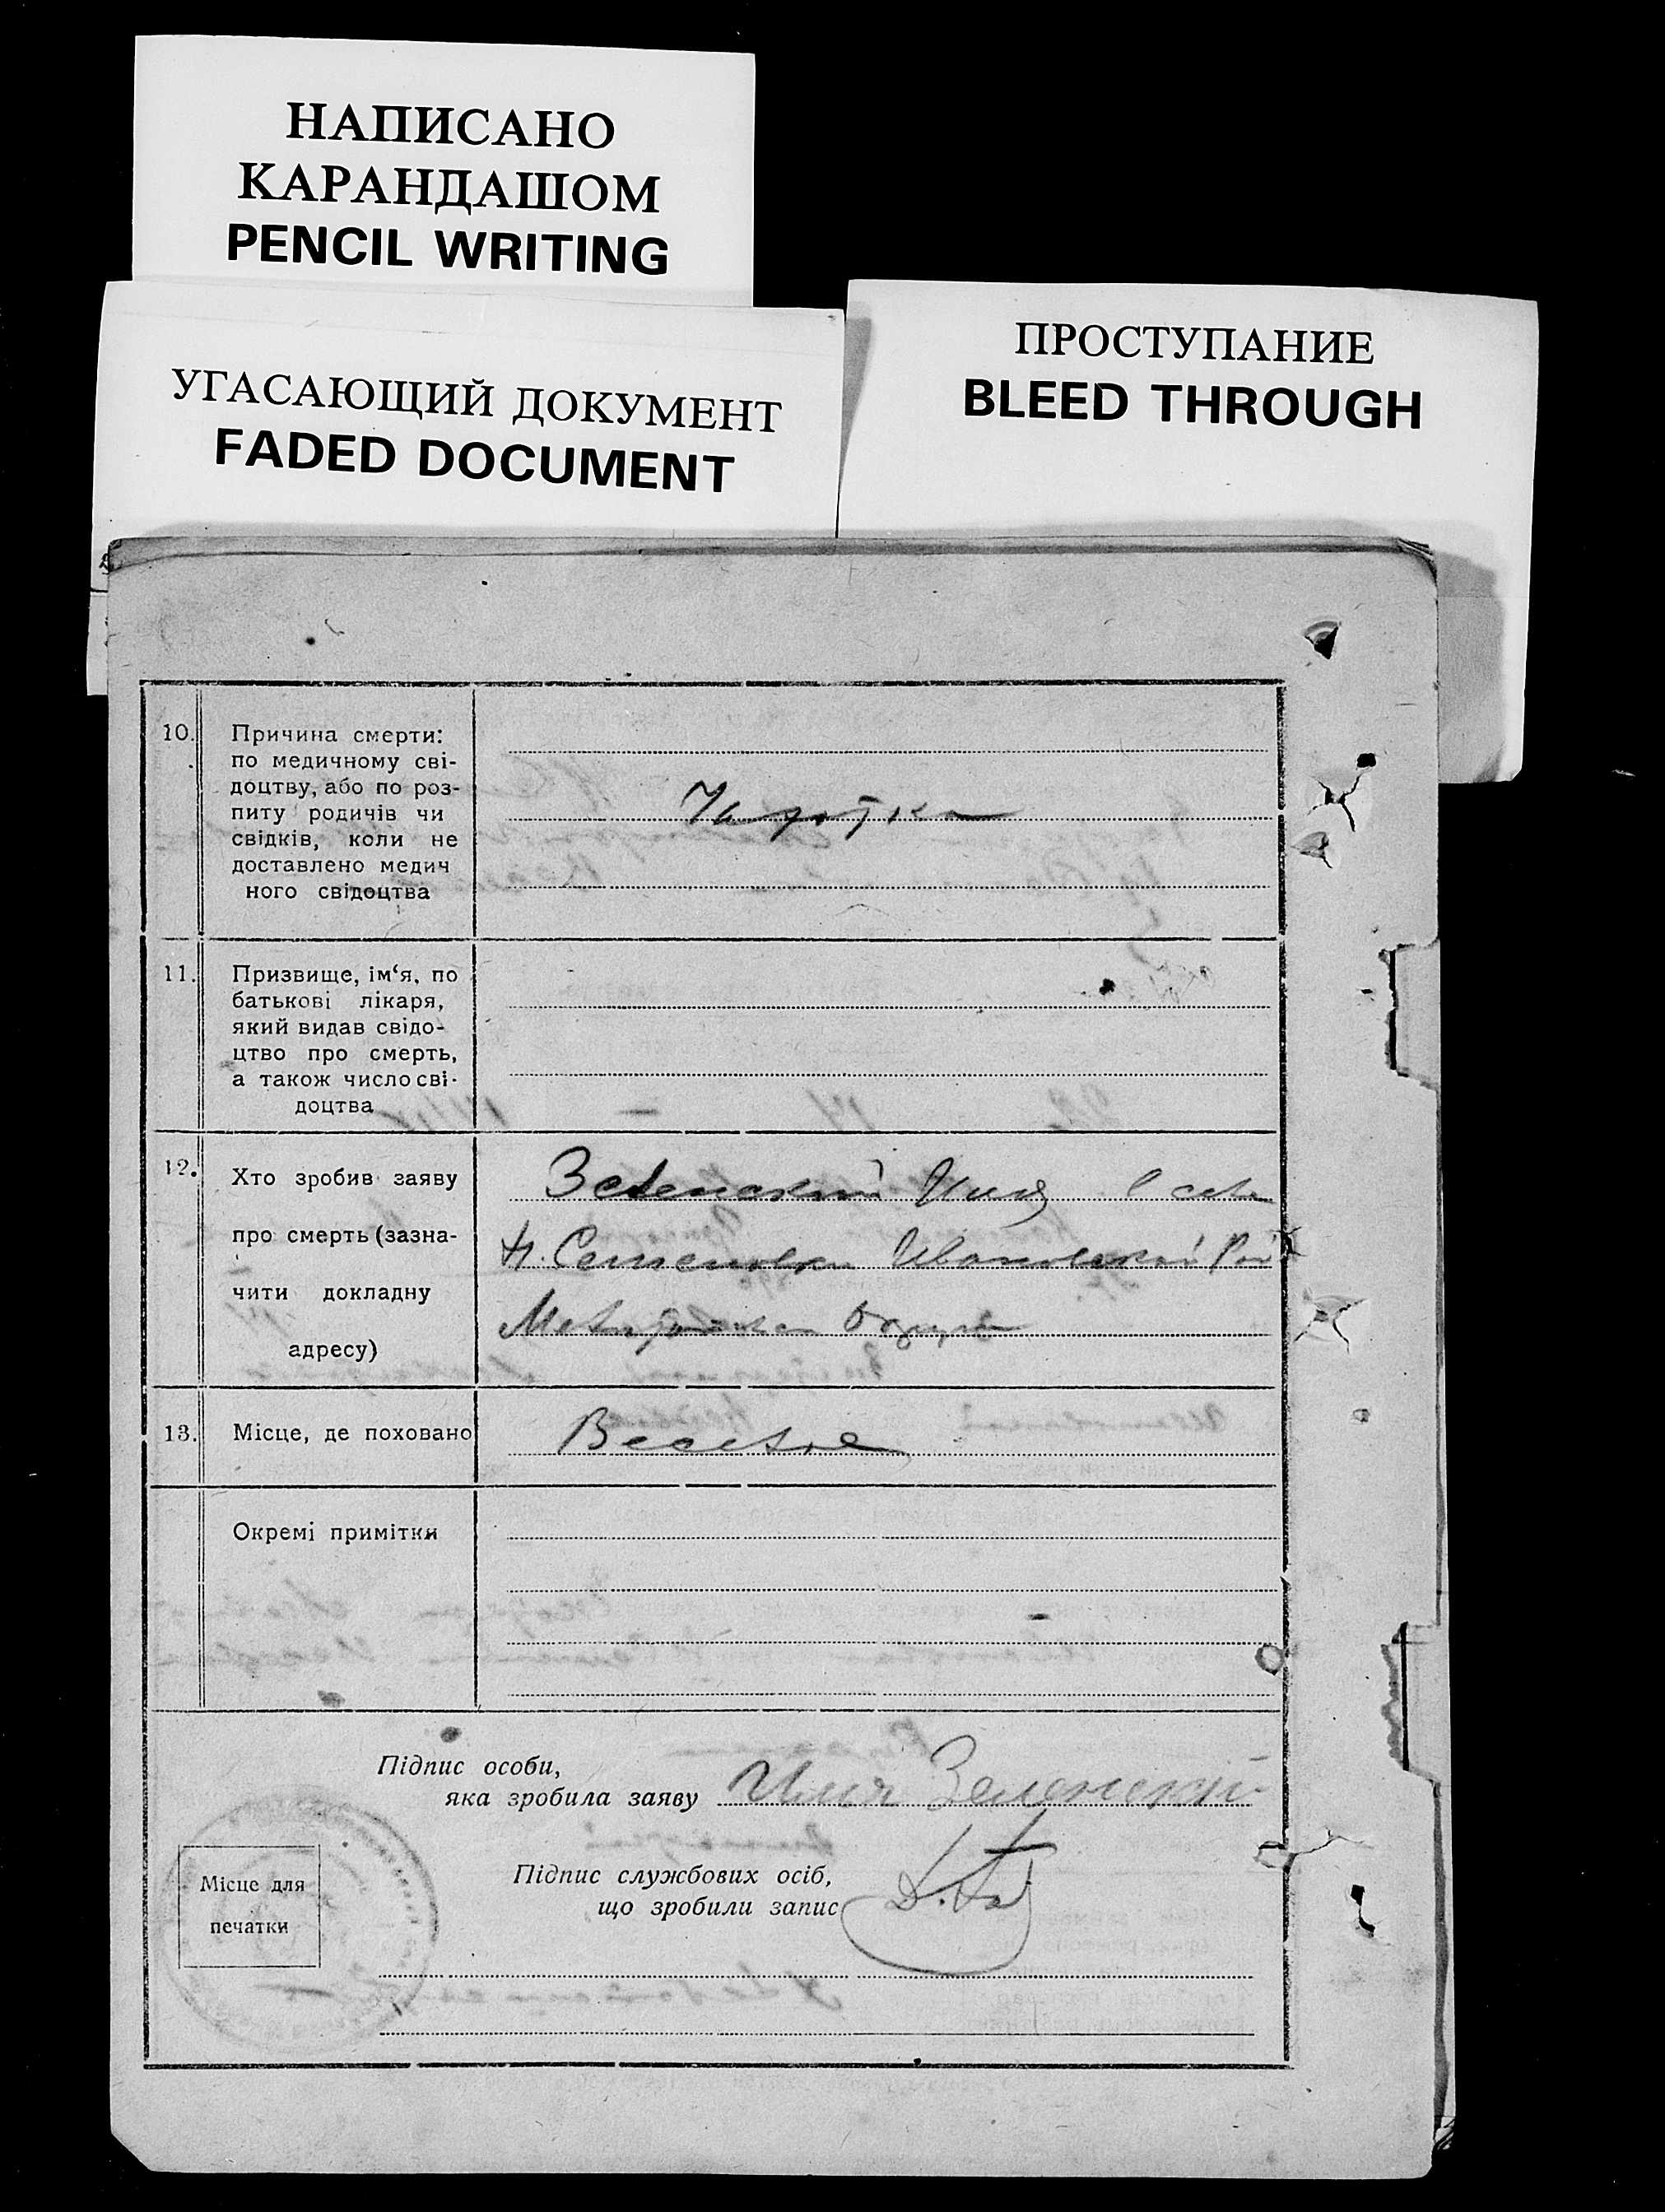 НАПИСАНО
КАРАНДАШОМ
PENCIL WRITING
УГАСАЮЩИЙ ДОКУМЕНТ
FADED DOCUMENT
ПРОСТУПАНИЕ
BLEED THROUGH
10.
Причина смерти:
по медичному сві-
доцтву, або по роз-
питу родичів чи
свідків, коли не
доставлено медич
ного свідоцтва
11.
Призвище, ім‘я, по
батькові лікаря,
який видав свідо-
цтво про смерть,
а також число сві-
доцтва
12.
Хто зробив заяву
про смерть (зазна-
чити докладну
адресу)
Зеленский Илия
Н. Семеновки Ивановской
13.
Місце, де поховано
Веселое
Окремі примітки
Підпис особи,
яка зробила заяву Илия Зеленский
Місце для
печатки
Підпис службових осіб,
що зробили запис